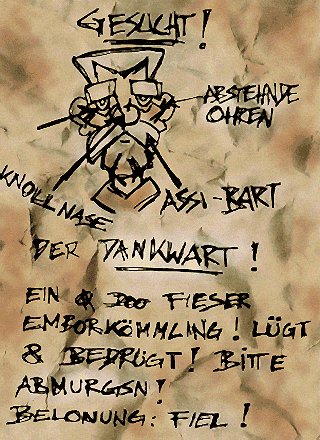 GESUCHT!
ABSTEHNDE
OHREN
KNOLLNASE
ASSI-BART
DER DANKWART!
EIN FIESER
EMBORKÖMMLING! LÜGT
& BEDRÜGT! BITTE
ABMURGSN!
BELONUNG: FIEL!